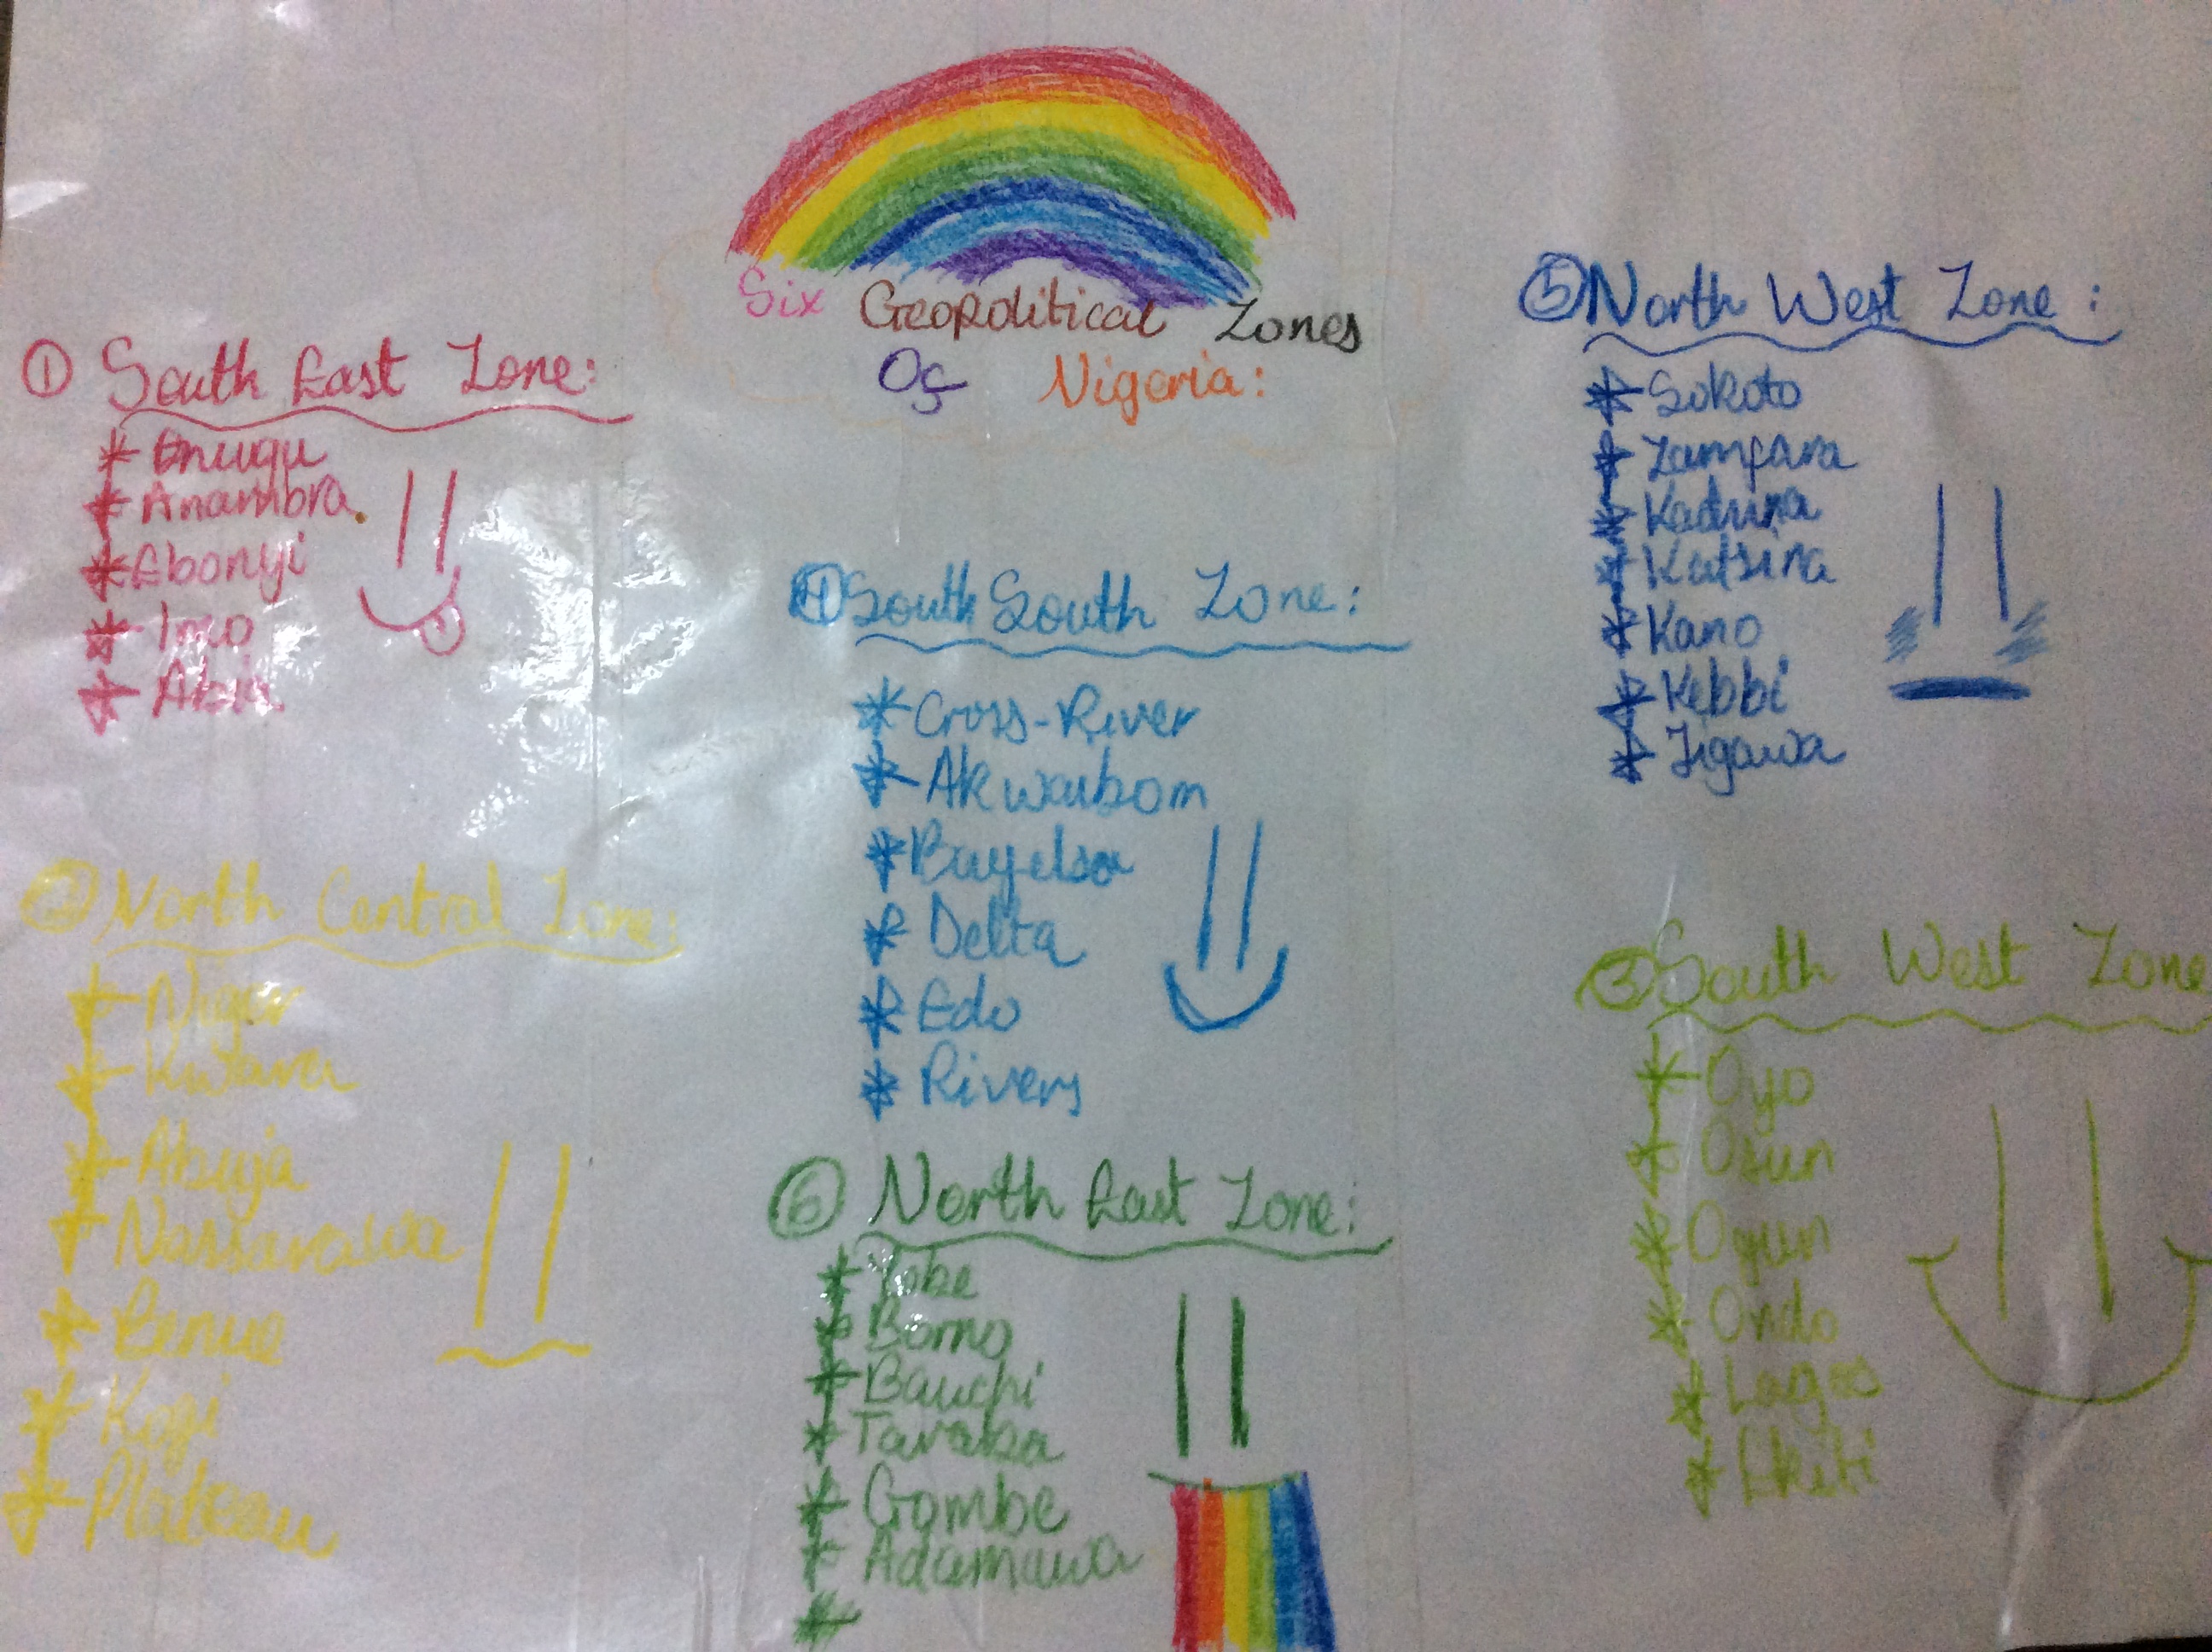 Six Geopolitical Zones
Of Nigeria:
① South East Zone:
* Enugu
* Anambra
* Ebonyi
* Imo
* Abia
② North Central Zone:
* Niger
* Kwara
* Abuja
* Nassarawa
* Benue
* Kogi
* Plateau
④ South South Zone:
* Cross-River
* Akwaibom
* Bayelsa
* Delta
* Edo
* Rivers
⑥ North East Zone:
* Yobe
* Borno
* Bauchi
* Taraba
* Gombe
* Adamawa
*
⑤ North West Zone:
* Sokoto
* Zamfara
* Kaduna
* Katsina
* Kano
* Kebbi
* Jigawa
③ South West Zone
* Oyo
* Osun
* Ogun
* Ondo
* Lagos
* Ekiti